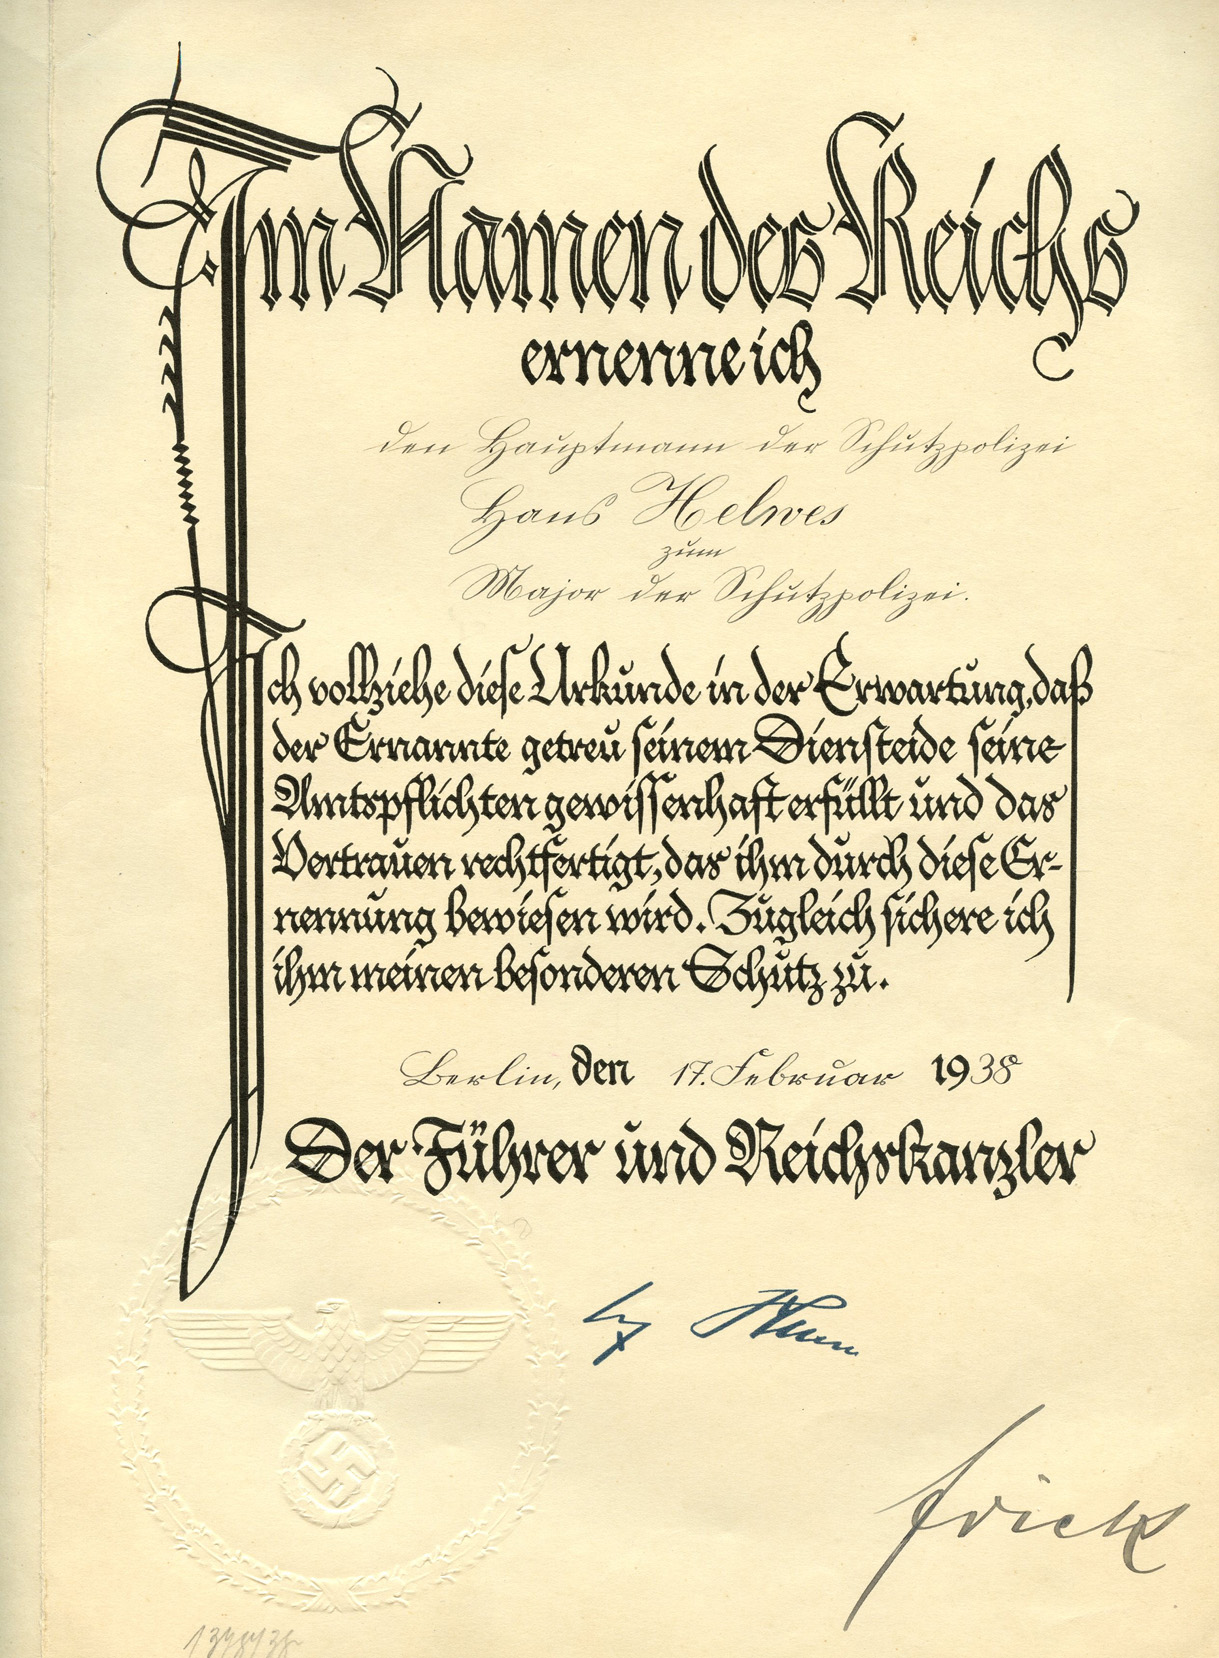 Im Namen des Reichs
ernenne ich
den Hauptmann der Schutzpolizei
Hans Helwes
zum
Major der Schutzpolizei.
Ich vollziehe diese Urkunde in der Erwartung, daß
der Ernannte getreu seinem Diensteide seine
Amtspflichten gewissenhaft erfüllt und das
Vertrauen rechtfertigt, das ihm durch diese Er-
nennung bewiesen wird. Zugleich sichere ich
ihm meinen besonderen Schutz zu.
Berlin, den 17. Februar 1938
Der Führer und Reichskanzler
Frick